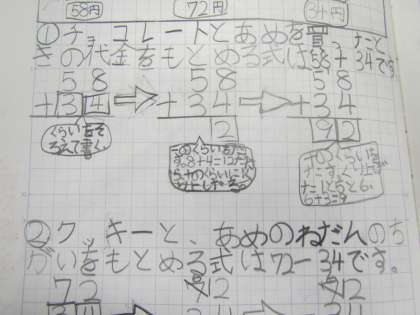 58円 72円 34円
①チョコレートとあめを買ったと
きの代金をもとめる式は58+34です。
58 58 58
+34 +34 +34
2 92
くらいをそろえて書く。
一のくらいをたす。8+4=12だから十のくらいに1くり上げる。
十のくらいをたす。くり上げた1と5で6。6+3=9
②クッキーと、あめのねだんのち
がいをもとめる式は72-34です。
72 72 72